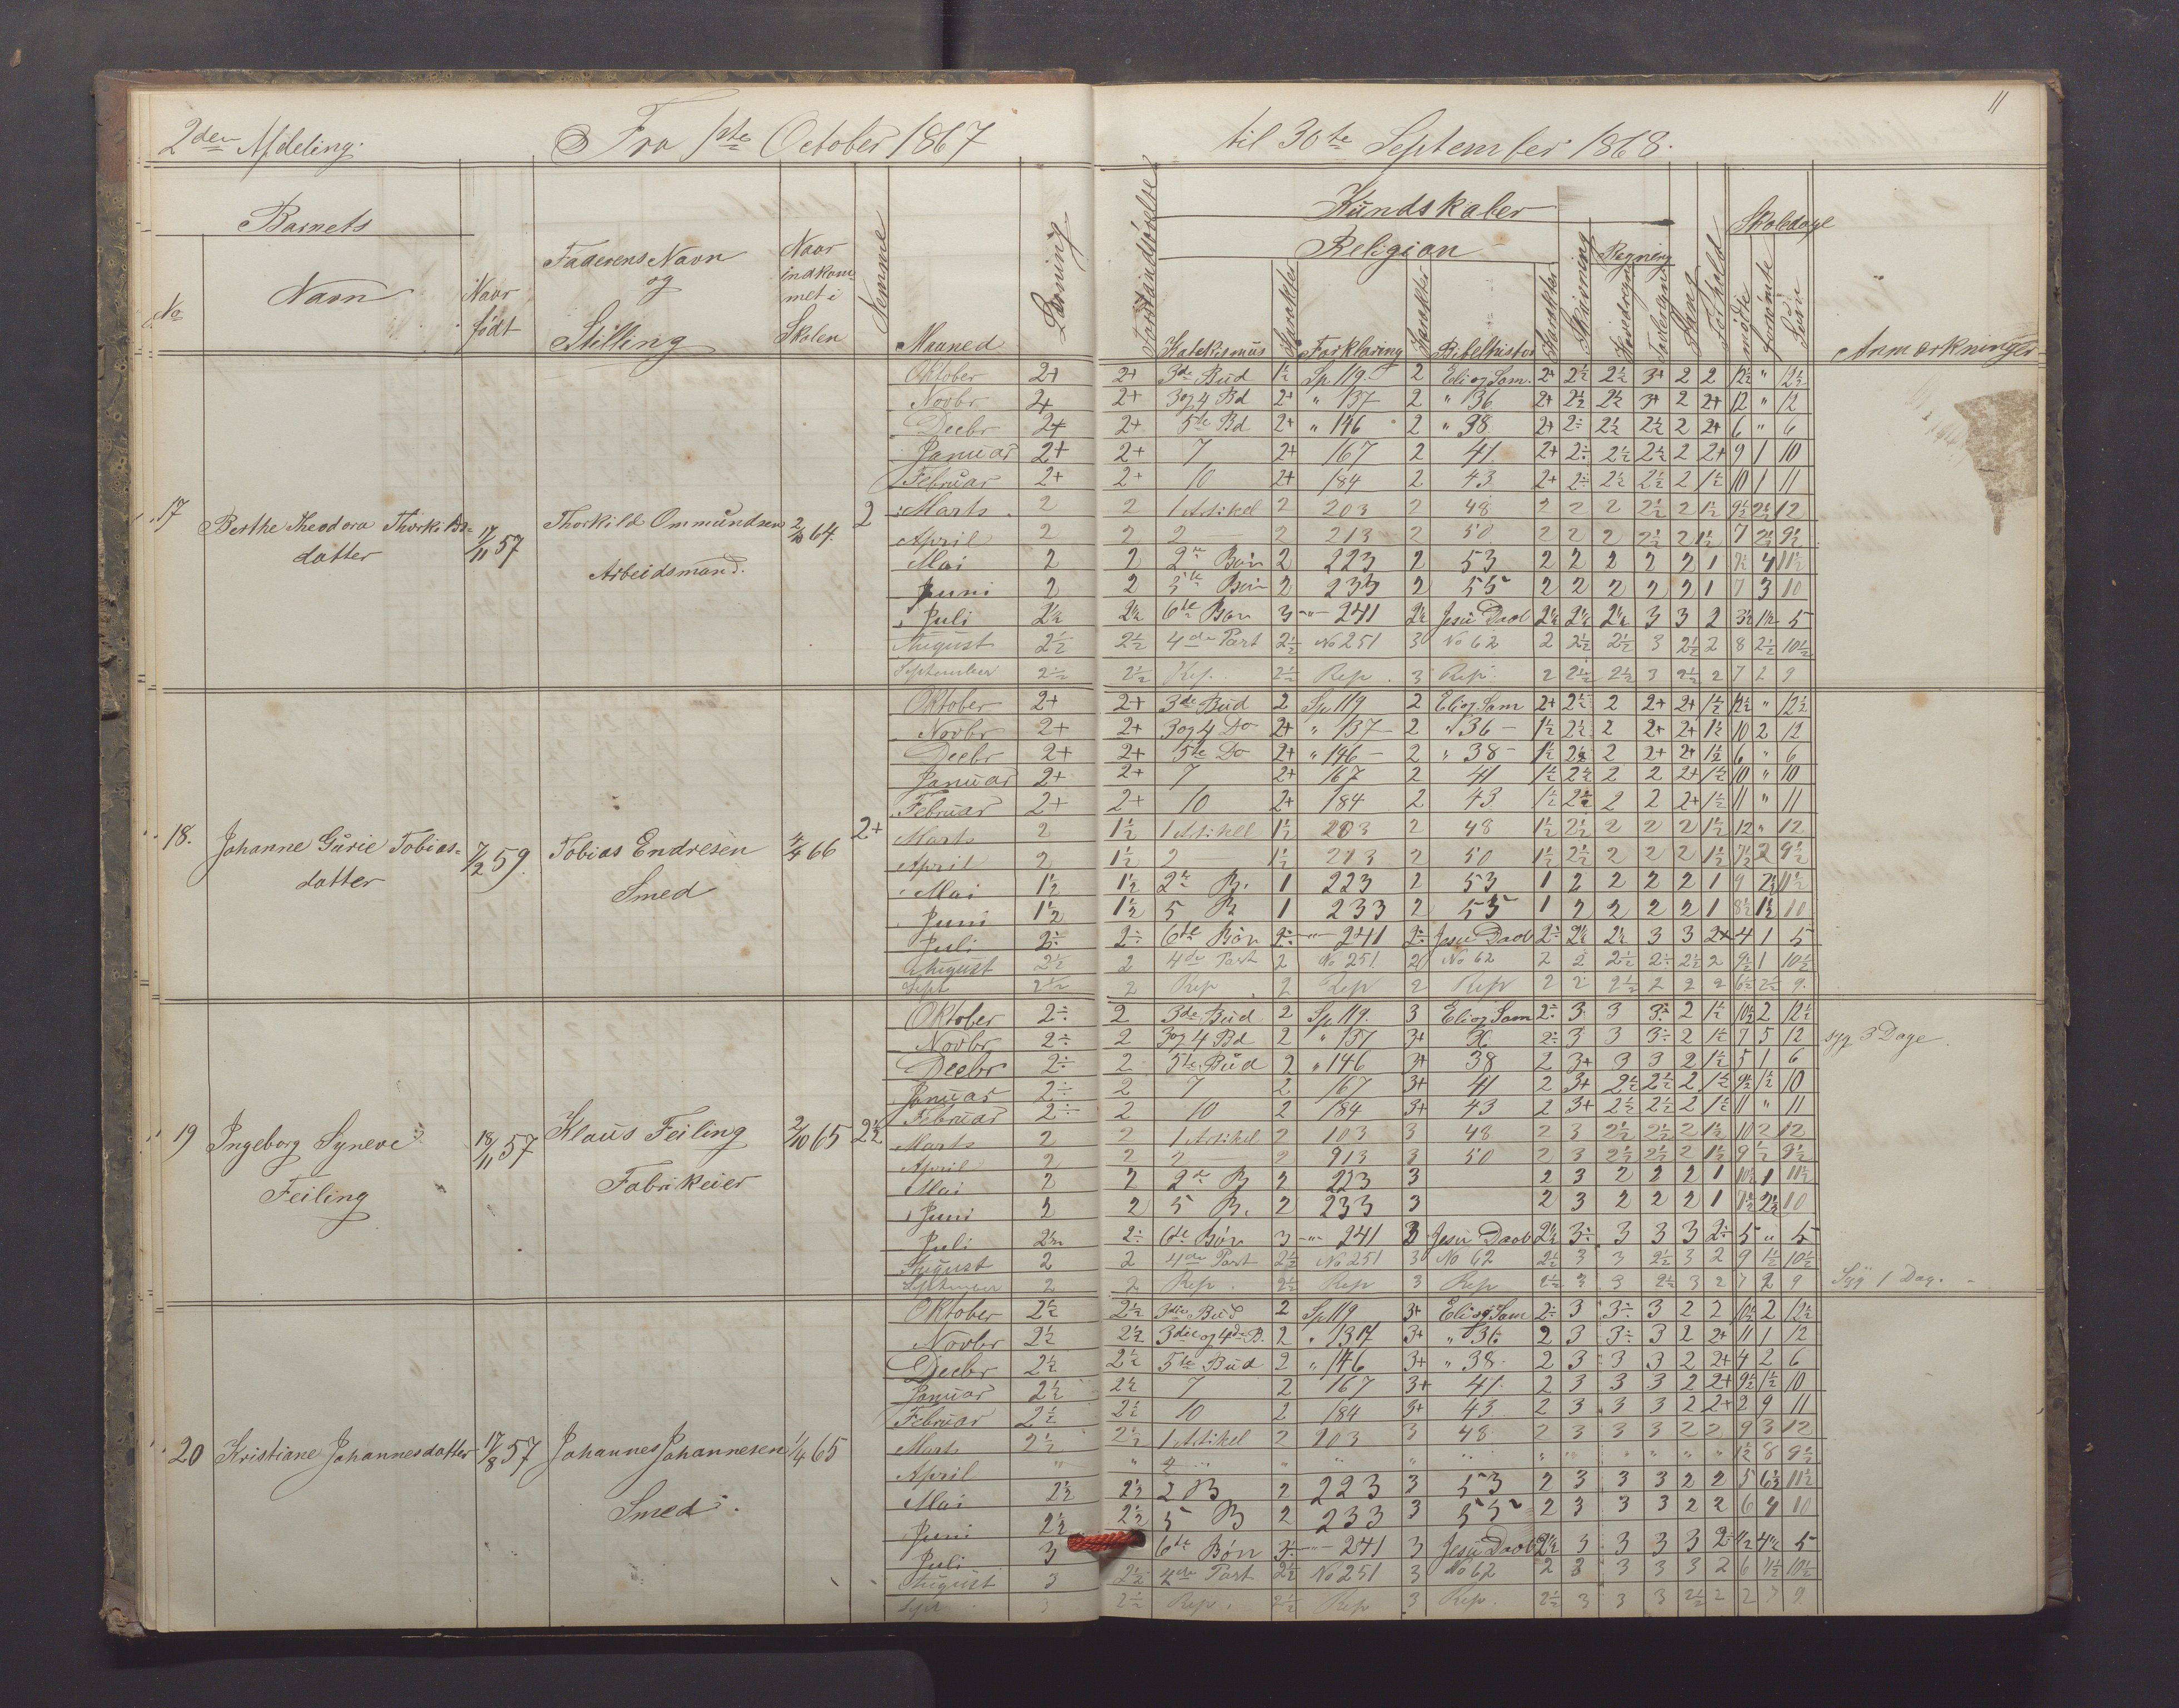 11
2den Afdeling. Fra 1ste October 1867 til 30te September 1868.
Barnets Kundskaber Skoledage
Religion Regning
No Navn Naar født Faderens Navn og Stilling Naar indkommet i Skolen Nemme Maaned Læsning Forstandsøvelse Katekismus Karakter Forklaring Karakter Bibelhistor Karakter Skrivning Hovedregn Tavleregn Sang Forhold mødte forsømte Sum Anmærkninger
17 Berthe Theodora Thorkilds= 17/11 57 Thorkild Ommundsen 2/10 64. 2
datter Arbeidsmand.
Oktober 2+ 2+ 3de Bud 1½ Sp. 119. 2 Eli og Sam. 2+ 2½ 2½ 3+ 2 2 12½ " 12½
Novbr 2+ 2+ 3 og 4 Bd 2+ " 137 2 " 36 2+ 2½ 2½ 3+ 2 2+ 12 " 12
Decbr 2+ 2+ 5te Bd 2+ " 146 2 " 38 2+ 2÷ 2½ 2½ 2 2+ 6 " 6
Januar 2+ 2+ 7 2+ 167 2 41 2+ 2÷ 2½ 2½ 2 2+ 9 1 10
Februar 2+ 2+ 10 2+ 184 2 43 2+ 2÷ 2½ 2½ 2 1½ 10 1 11
Marts 2 2 1 Artikel 2 203 2 48 2 2 2 2½ 2 1½ 9½ 2½ 12
April 2 2 2 2 213 2 50 2 2 2 2½ 2 1½ 7 2½ 9½
Mai 2 2 2den Bøn 2 223 2 53 2 2 2 2 2 1 7½ 4 11½
Juni 2 2 5te Bøn 2 233 2 55 2 2 2 2 2 1 7 3 10
Juli 2½ 2½ 6te Bøn 3 -"- 241 2½ Jesu Daab 2½ 2½ 2½ 3 3 2 3½ 1½ 5
August 2½ 2½ 4de Part 2½ No 251 3 No 62 2 2½ 2½ 3 2½ 2 8 2½ 10½
September 2½ 2½ Rep. 2½ Rep. 3 Rep. 2 2½ 2½ 3 2½ 2 7 2 9
18. Johanne Gurie Tobias= 7/2 59. Tobias Endresen 4/4 66 2+
datter Smed
Oktober 2+ 2+ 3de Bud 2 Sp. 119 2 Eli og Sam 2+ 2½ 2 2+ 2+ 1½ 12½ " 12½
Novbr 2+ 2+ 3 og 4 Do 2+ " 137 2 " 36 1½ 2½ 2 2+ 2+ 1½ 10 2 12
Decbr 2+ 2+ 5te Do 2+ " 146 2 " 38 1½ 2½ 2 2+ 2+ 1½ 6 " 6
Januar 2+ 2+ 7 2+ 167 2 41 1½ 2½ 2 2 2+ 1½ 10 " 10
Februar 2+ 2+ 10 2+ 184 2 43 1½ 2½ 2 2 2+ 1½ 11 " 11
Marts 2 1½ 1 Artikel 1½ 203 2 48 1½ 2½ 2 2 2 1½ 12 " 12
April 2 1½ 2 1½ 213 2 50 1½ 2½ 2 2 2 1½ 7½ 2 9½
Mai 1½ 1½ 2de B. 1 223 2 53 1 2 2 2 2 1 9 2½ 11½
Juni 1½ 1½ 5 B 1 233 2 55 1 2 2 2 2 1 8½ 1½ 10
Juli 2÷ 2÷ 6te Bøn 2÷ -"- 241 2÷ Jesu Daab 2÷ 2½ 2½ 3 3 2+ 4 1 5
August 2½ 2 4de Part 2 No 251 2 No 62 2 2 2½ 2÷ 2½ 2 9½ 1 10½
Sept 2½ 2 Rep. 2 Rep 2 Rep 2 2 2½ 2 2 2 6½ 2½ 9.
19 Ingeborg Syneve 18/11 57 Klaus Feiling 2/10 65 2½
Feiling Fabrikeier
Oktober 2÷ 2 3de Bud 2 Sp. 119. 3 Eli og Sam 2÷ 3 3 3÷ 2 1½ 10½ 2 12½
Novbr 2÷ 2 3 og 4 Bd 2 " 137 3+ 2÷ 3 3 3÷ 2 1½ 7 5 12 syg 3 Dage.
Decbr 2÷ 2 5te Bud 2 " 146 3+ 38 2 3+ 3 3 2 1½ 5 1 6
Januar 2÷ 2 7 2 167 3+ 41 2 3+ 2½ 2½ 2 1½ 9½ ½ 10
Februar 2÷ 2 10 2 184 3+ 43 2 3+ 2½ 2½ 2 1½ 11 " 11
Marts 2 2 1 Artikel 2 103 3 48 2 3 2½ 2½ 2 1½ 10 2 12
April 2 2 2 2 913 3 50 2 3 2½ 2½ 2 1½ 9 ½ 9½
Mai 2 2 2de B 2 223 3 2 3 2 2 2 1 10½ 1 11½
Juni 2 2 5 B. 2 233 3 2 3 2 2 2 1 7½ 2½ 10
Juli 2½ 2÷ 6te Bøn 3 -"- 241 3 Jesu Daab 2½ 3÷ 3 3 3 2÷ 5 " 5
August 2 2 4de Part 2½ No 251 3 No 62 2½ 3 3 2½ 3 2 9 1½ 10½
September 2 2 Rep. 2½ Rep 3 Rep 2½ 3 3 2½ 3 2 7 2 9 Syg 1 Dag.
20 Kristiane Johannesdatter 17/8 57 Johannes Johannesen 1/4 65
Smed.
Oktober 2½ 2½ 3die Bud 2 Sp 119 3+ Eli og Sam 2÷ 3 3÷ 3 2 2 10½ 2 12½
Novbr 2½ 2½ 3die og 4de B. 2 " 137 3+ " 36 2 3 3÷ 3 2 2+ 11 1 12
Decbr 2½ 2½ 5te Bud 2 " 146 3+ " 38 2 3 3 3 2 2+ 4 2 6
Januar 2½ 2½ 7 2 167 3+ 41 2 3 3 3 2 2+ 9½ ½ 10
Februar 2½ 2½ 10 2 184 3+ 43 2 3 3 3 2 2+ 2 9 11
Marts 2½ 2½ 1 Artikel 2 203 3 48 2 3 3 3 2 2 9 3 12
April " " 2 " " " " " " " " " " 1½ 8 9½
Mai 2½ 2½ 2 B 2 223 3 53 2 3 3 3 2 2 5 6½ 11½
Juni 2½ 2½ 5 B 2 233 3 55 2 3 3 3 2 2 6 4 10
Juli 3 6te Bøn 3÷ -"- 241 3 Jesu Daab 2½ 3 3 3 3 2÷ ½ 4½ 5
August 3 2½ 4de Part 2½ No 251 3 No 62 2 3 3 3 3 2 6 4½ 10½
Sept 3 2½ Rep. 2½ Rep 3 Rep. 2½ 3 3 3 2½ 2 2 7 9